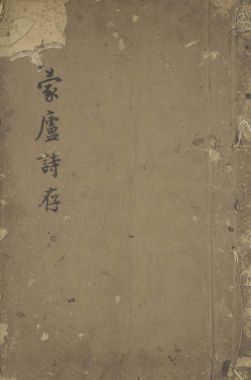 蒙廬詩存